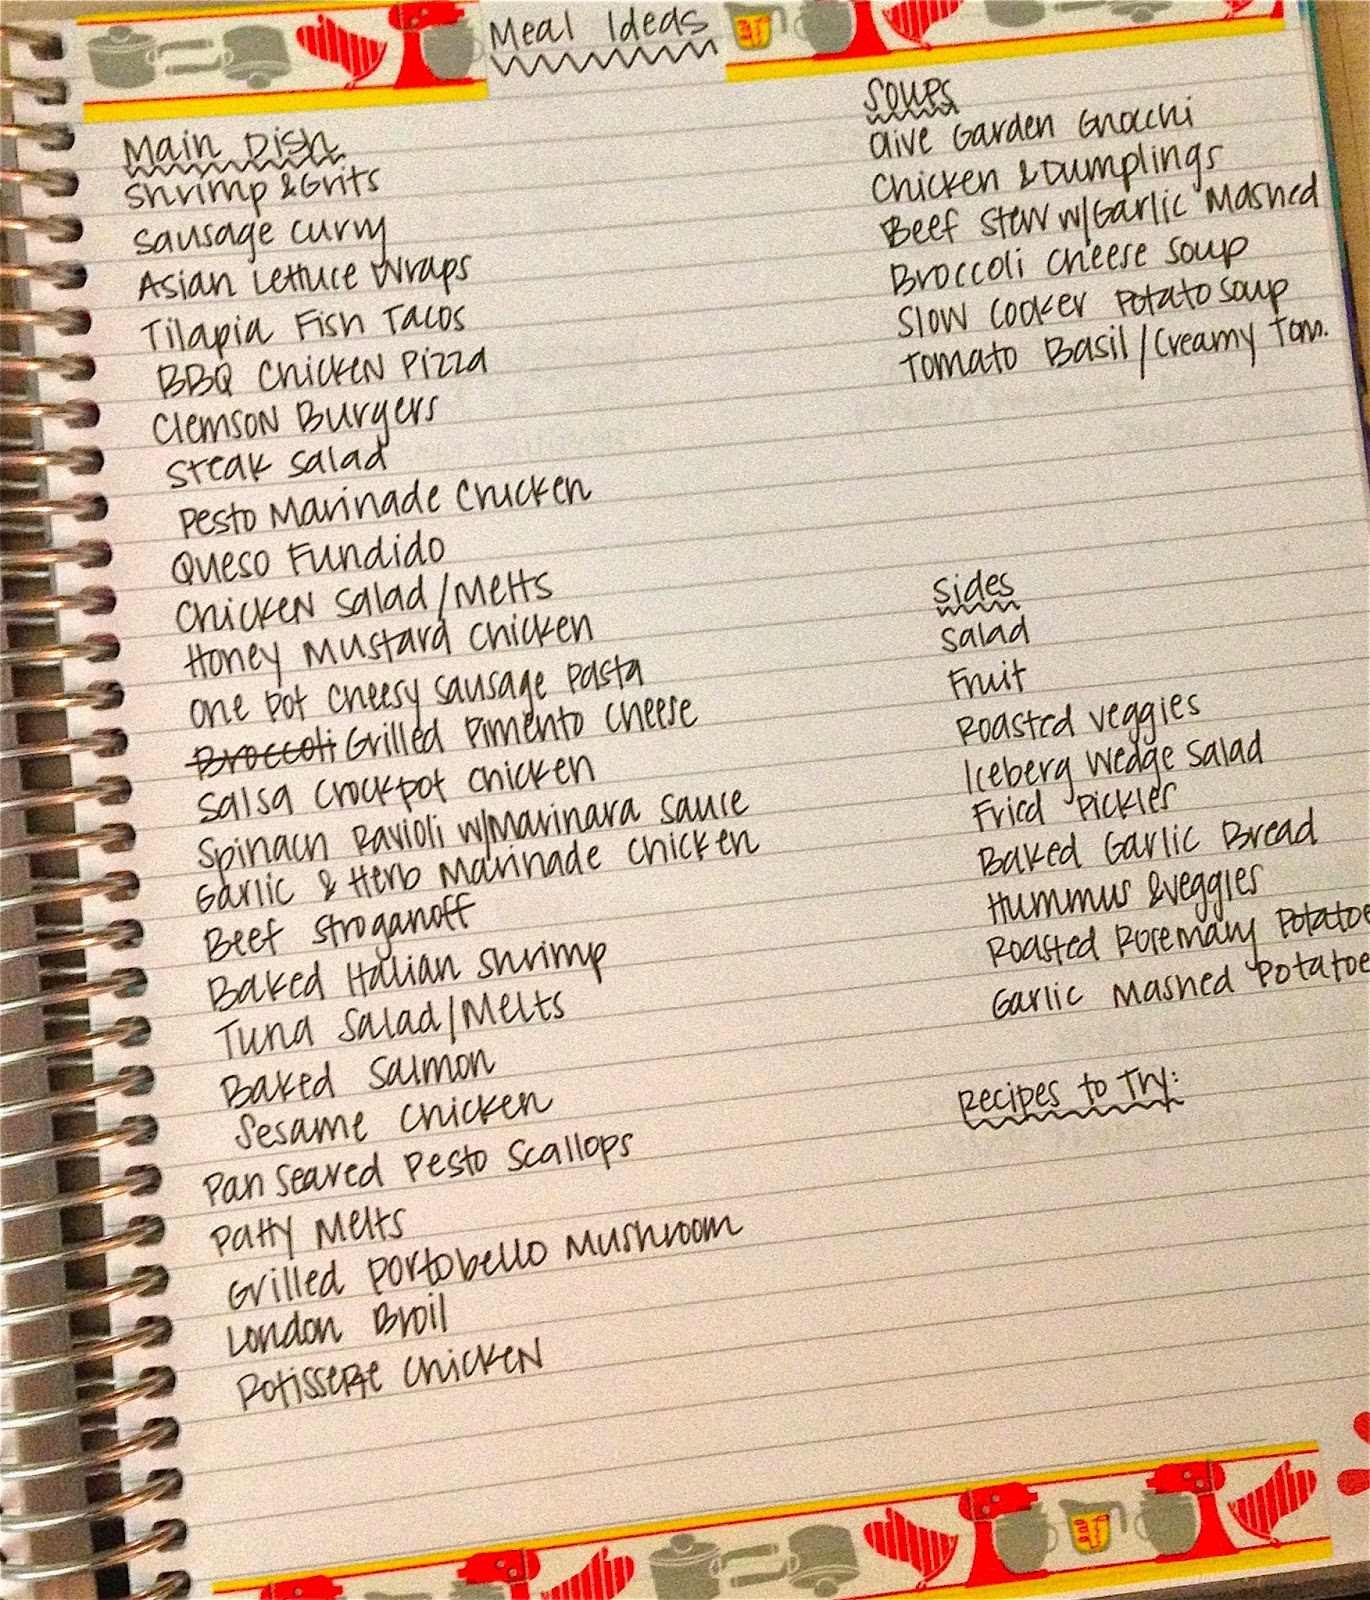 Meal Ideas
Main Dish
Shrimp & Grits
Sausage Curry
Asian Lettuce Wraps
Tilapia Fish Tacos
BBQ Chicken Pizza
Clemson Burgers
Steak Salad
Pesto Marinade Chicken
Queso Fundido
Chicken Salad/Melts
Honey Mustard Chicken
One Pot Cheesy Sausage Pasta
Broccoli Grilled Pimento Cheese
Salsa Crockpot Chicken
Spinach Ravioli w/Marinara Sauce
Garlic & Herb Marinade Chicken
Beef Stroganoff
Baked Italian Shrimp
Tuna Salad/Melts
Baked Salmon
Sesame Chicken
Pan Seared Pesto Scallops
Patty Melts
Grilled Portobello Mushroom
London Broil
Rotisserie Chicken
Soups
Olive Garden Gnocchi
Chicken & Dumplings
Beef Stew w/Garlic Mashed
Broccoli Cheese Soup
Slow Cooker Potato Soup
Tomato Basil/Creamy Tom.
Sides
Salad
Fruit
Roasted Veggies
Iceberg Wedge Salad
Fried Pickles
Baked Garlic Bread
Hummus & Veggies
Roasted Rosemary Potatoe
Garlic Mashed Potatoe
Recipes to Try: